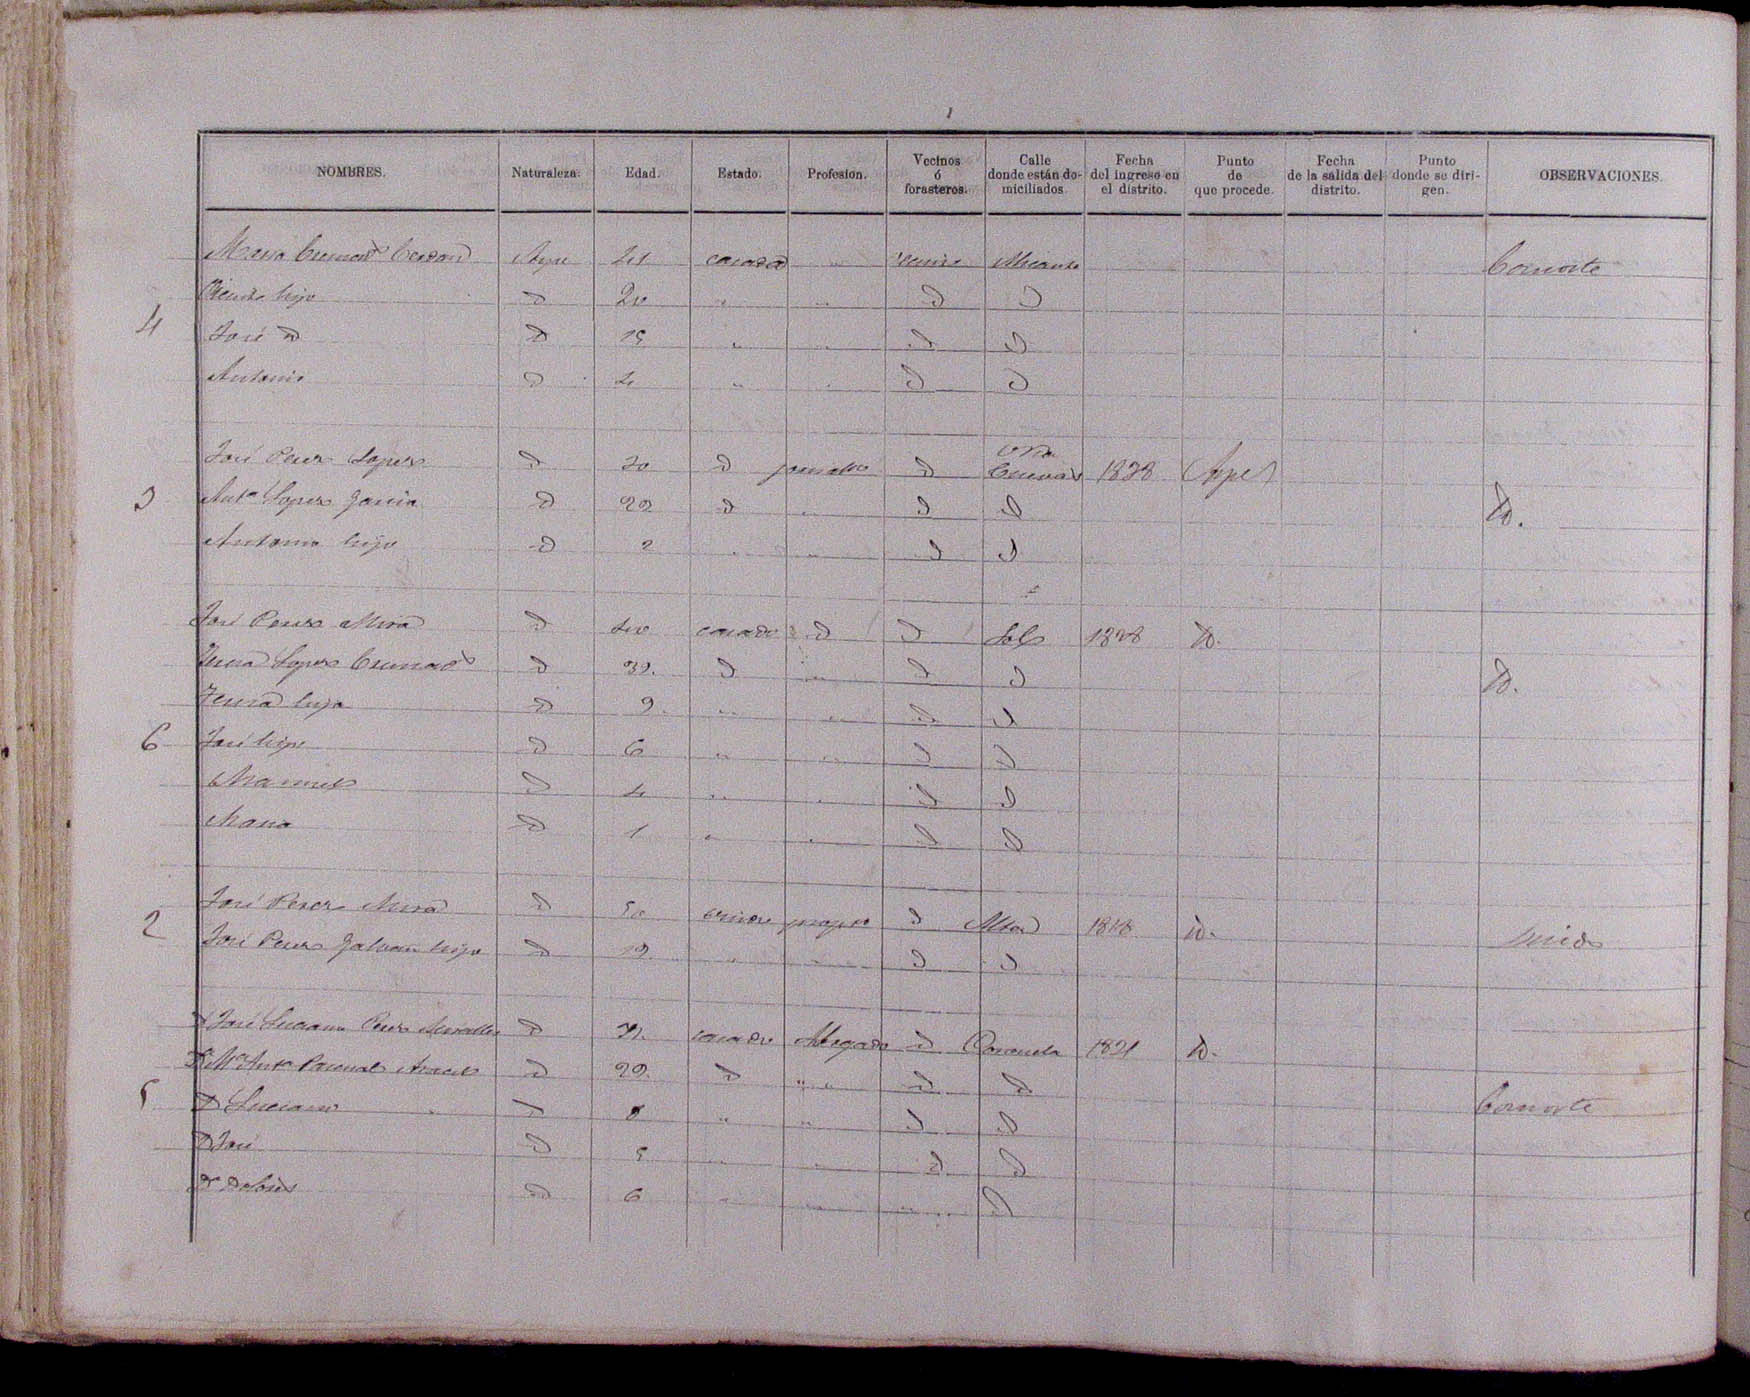 NOMBRES. Naturaleza. Edad. Estado. Profesion. Vecinos ó forasteros. Calle donde están domiciliados Fecha del ingreso en el distrito. Punto de que procede. Fecha de la salida del distrito. Punto donde se dirigen. OBSERVACIONES.
Maria Cerdan casada vecino Alicante Consorte
Vicente hijo D 20 " " D D
4
José D D 15 " " D D
Antonio D 4 " " D D
José Perez Lopez D 30 D jornalero D Cuevas 1838 Aspe
3 Ant.ª Lopez Garcia D 29 D " D D D.
Antonio hijo D 2 " " D D
José Perez Mira D 40 casado D D Sol 1838 D.
Lopez D 39. D " D D D.
Teresa hija D 9 " " D D
6 José hijo D 6 " " D D
Manuel D 4 " " D D
Maria D 1 " " D D
José Perez Mira D 50 viudo D Alta 1818 D.
2 Viudo
José Perez Galvañ hijo D 19 " " D D
D José Luciano Perez Miralles D casado Abogado D 1821 D.
D.ª M.ª Ant.ª Pascual D 29. D " D D
5 D Luciano D 8 " " D D Consorte
D José D 5 " " D D
D.ª Dolores D 6 " " " D